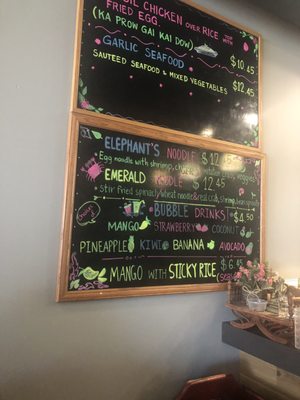 BASIL CHICKEN OVER RICE TOP W/
FRIED EGG
$10.45
(KA PROW GAI KAI DOW)
GARLIC SEAFOOD
SAUTEED SEAFOOD & MIXED VEGETABLES $12.45
ELEPHANT'S NOODLE $12.45
Egg noodle with shrimp, veggies
EMERALD NOODLE $12.45
stir fried spinach/wheat noodle & real crab, shrimp, bean sprouts
BUBBLE DRINKS $4.50
MANGO STRAWBERRY COCONUT
PINEAPPLE KIWI BANANA AVOCADO
MANGO WITH STICKY RICE $6.